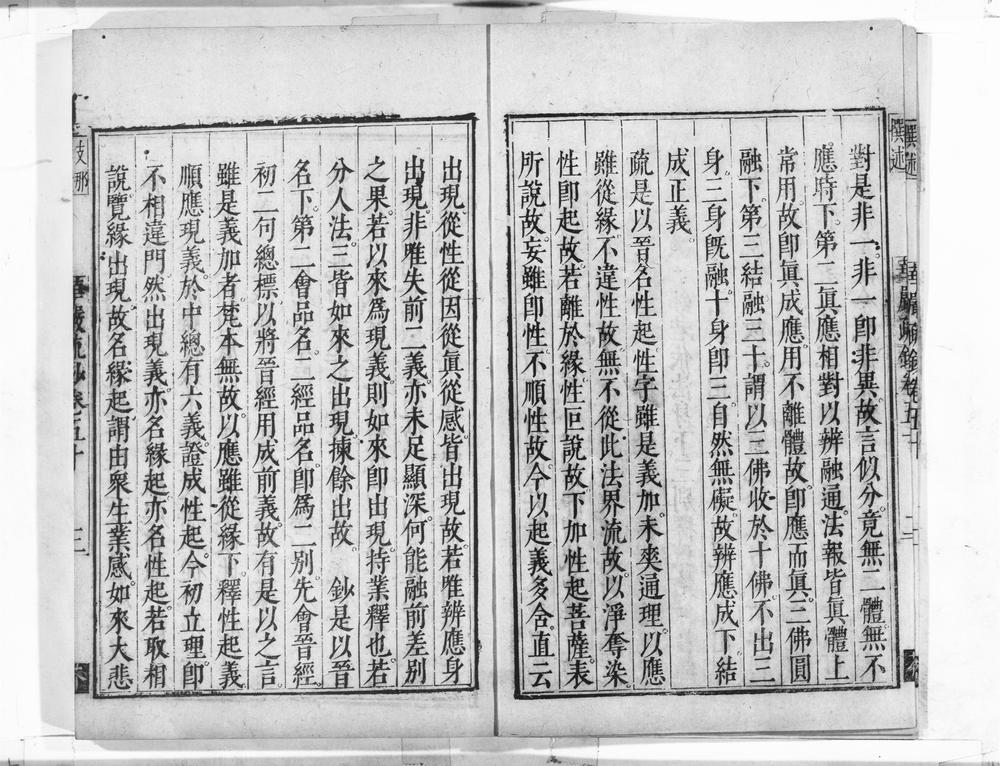 對是非一。非一即非異。故言似分。竟無二體。無不
應時下。第二眞應相對以辨融通。法報皆眞。體上
常用。故即眞成應。用不離體。故即應而眞。三佛圓
融下。第三結融三十。謂以三佛收於十佛。不出三
身。三身既融。十身即三。自然無礙。故辨應成下。結
成正義。
疏是以晉名性起。性字雖是義加。未爽通理。以應
雖從緣。不違性故。無不從此法界流故。以淨奪染
性即起故。若離於緣。性叵說故。下加性起菩薩表
所說故。妄雖即性。不順性故。今以起義多含。直云
出現。從性從因從眞從感。皆出現故。若唯辨應身
出現。非唯失前二義。亦未足顯深。何能融前差別
之果。若以來爲現義。則如來即出現。持業釋也。若
分人法。三皆如來之出現。揀餘出故　鈔是以晉
名下。第二會品名。二經品名。即爲二別。先會晉經。
初二句總標。以將晉經用成前義。故有是以之言
雖是義加者。梵本無故。以應雖從緣下。釋性起義
順應現義。於中總有六義。證成性起。今初立理。即
不相違門。然出現義。亦名緣起。亦名性起。若取相
說。覽緣出現。故名緣起。謂由衆生業感。如來大悲
撰述
華嚴疏鈔卷五十
二
支那
華嚴疏鈔卷五十
三